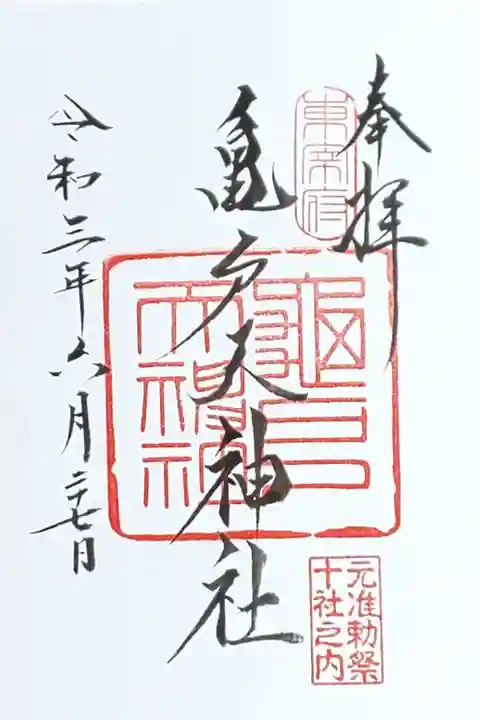 奉拝
東宰府
亀戸天神社
龜戸天神社
元准勅祭
十社之内
令和三年六月二十七日